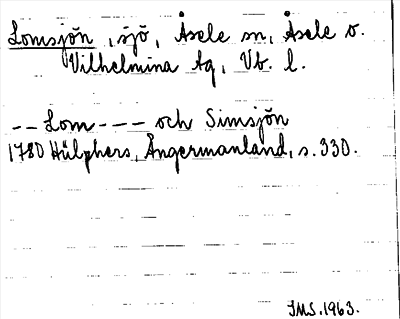 Lomsjön, sjö, Åsele sn, Åsele o.
Vilhelmina tg, Vb. l.
-- Lom --- och Simsjön
1780 Hülphers, Ångermanland, s. 330.
IMS. 1963.